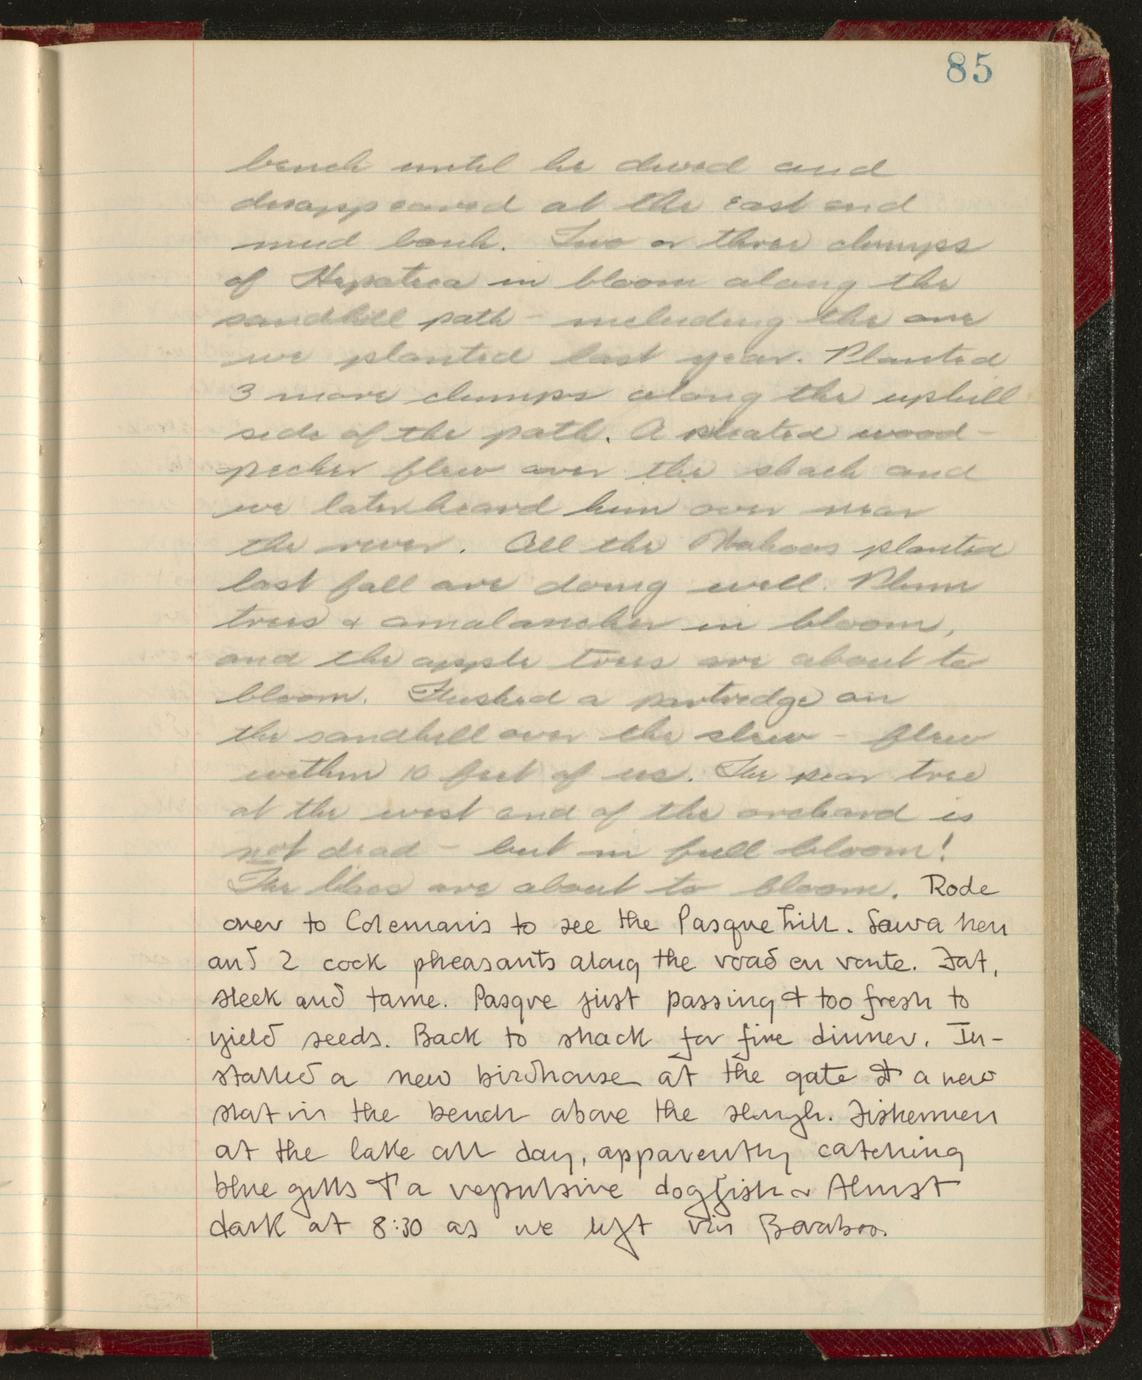 85
bench until he dived and
disappeared at the east end
mud bank. Two or three clumps
of Hepatica in bloom along the
sandhill path - including the one
we planted last year. Planted
3 more clumps along the uphill
side of the path. A pileated wood-
pecker flew over the shack and
we later heard him over near
the river. All the Wahoos planted
last fall are doing well. Plum
trees & amalancher in bloom,
and the apple trees are about to
bloom. Flushed a partridge on
the sandhill over the slew - flew
within 10 feet of us. The pear tree
at the west end of the orchard is
not dead - but in full bloom!
The lilacs are about to bloom. Rode
over to Coleman's to see the Pasque hill. Saw a hen
and 2 cock pheasants along the road en route. Fat,
sleek and tame. Pasque just passing & too fresh to
yield seeds. Back to shack for fine dinner. In-
stalled a new birdhouse at the gate & a new
slat in the bench above the slough. Fishermen
at the lake all day, apparently catching
blue gills & a repulsive dogfish. Almost
dark at 8:30 as we left via Baraboo.